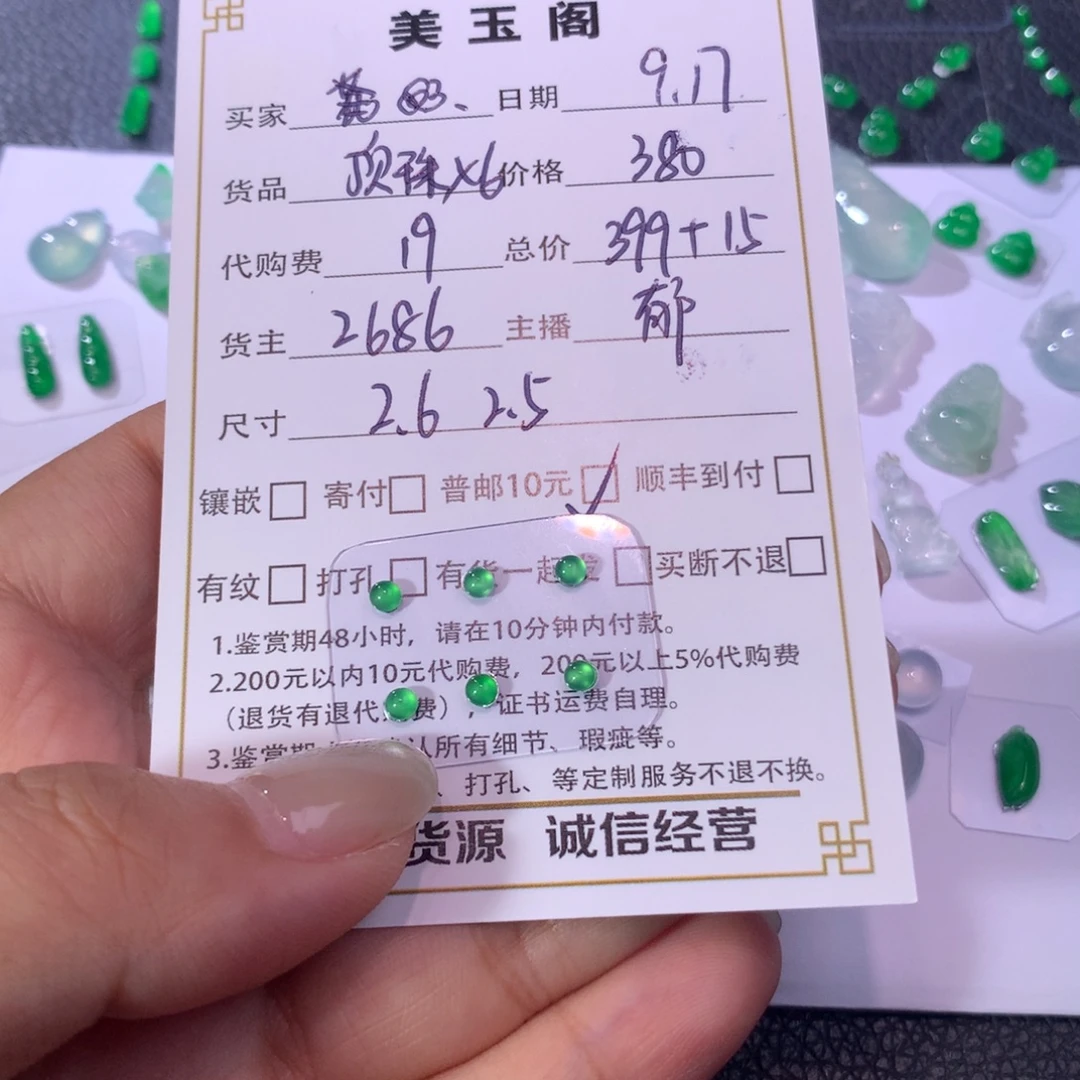 美玉阁
买家 日期 9.17
货品 顶珠×6 价格 380
代购费 19 总价 399+15
货主 2686 主播 郁
尺寸 2.6 2.5
镶嵌□ 寄付□ 普邮10元☑ 顺丰到付□
有纹□ 打孔□ 有货一起发□ 买断不退□
1.鉴赏期48小时，请在10分钟内付款。
2.200元以内10元代购费，200元以上5%代购费
（退货有退代 费），证书运费自理。
3.鉴赏期 认所有细节、瑕疵等。
、打孔、等定制服务不退不换。
货源 诚信经营